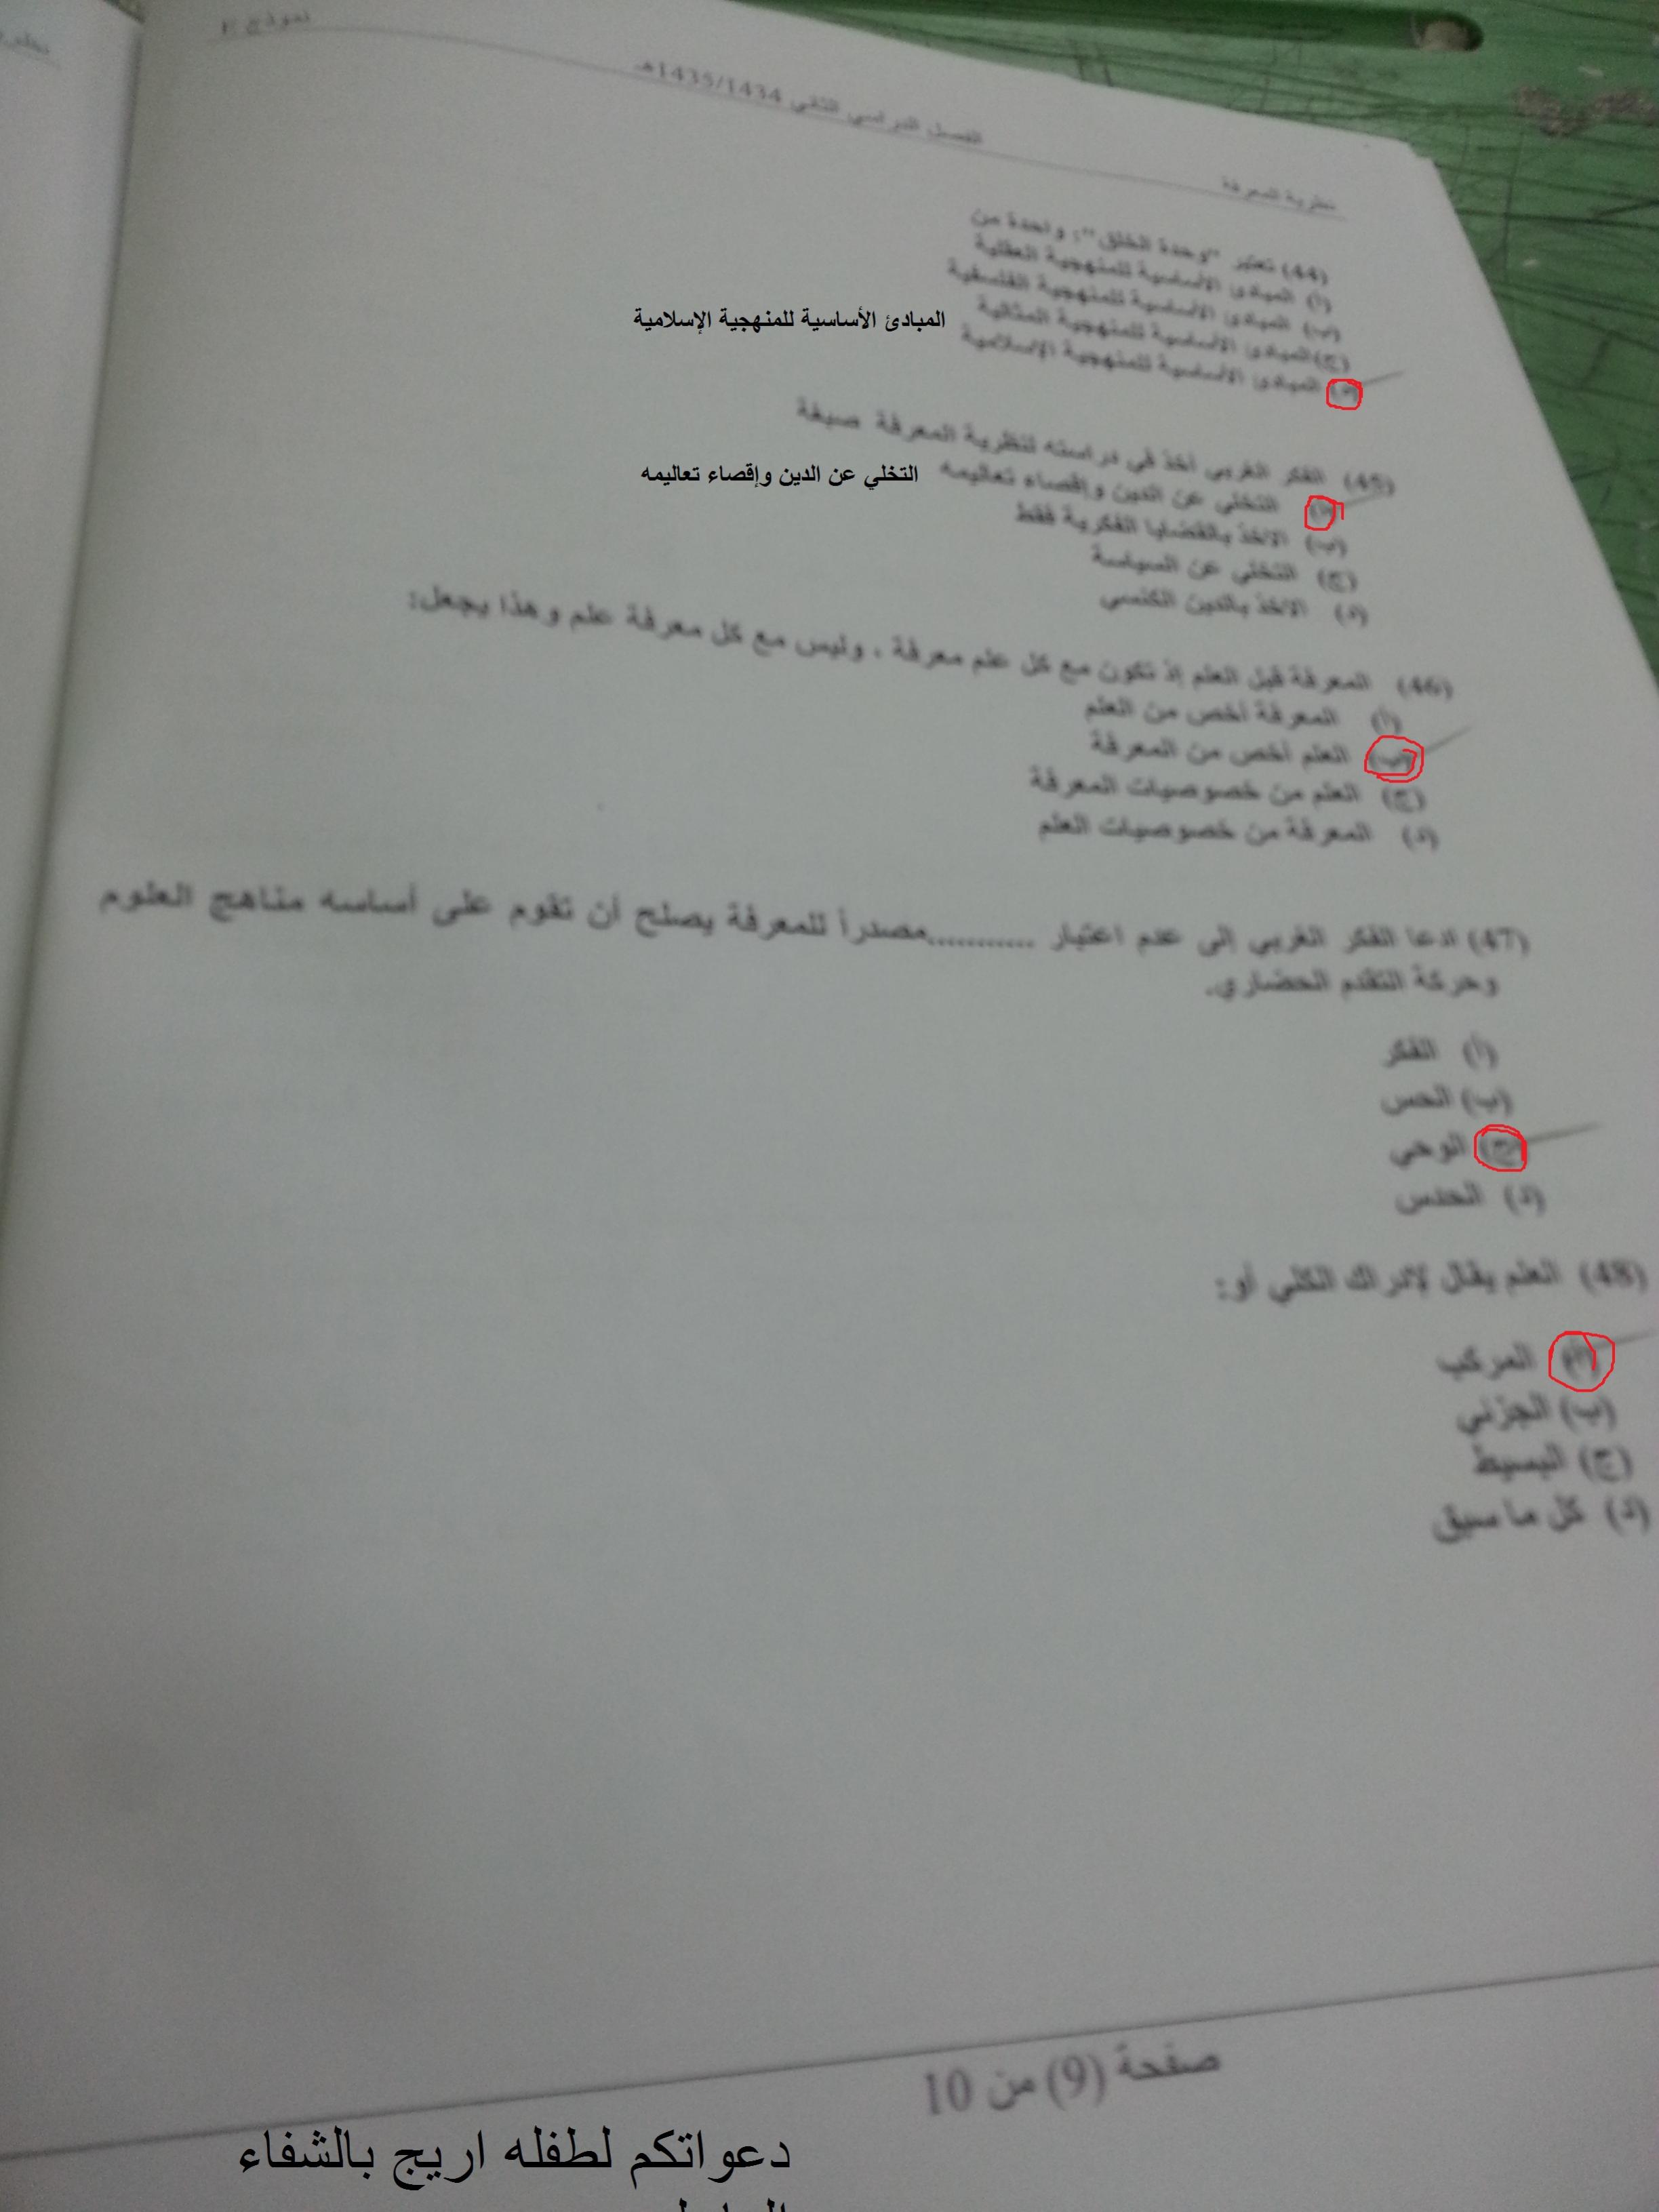 نموذج
الفصل الدراسي الثاني 1435/1434هـ
نظرية المعرفة
(44) تعتبر "وحدة الخلق": واحدة من
(أ) المبادئ الأساسية للمنهجية العقلية
(ب) المبادئ الأساسية للمنهجية الفلسفية
(ج) المبادئ الأساسية للمنهجية المثالية
(د) المبادئ الأساسية للمنهجية الإسلامية
المبادئ الأساسية للمنهجية الإسلامية
(45) الفكر الغربي أخذ في دراسته لنظرية المعرفة صبغة
(أ) التخلي عن الدين وإقصاء تعاليمه
التخلي عن الدين وإقصاء تعاليمه
(ب) الاخذ بالقضايا الفكرية فقط
(ج) التخلي عن السياسة
(د) الاخذ بالدين الكنسي
(46) المعرفة قبل العلم إذ تكون مع كل علم معرفة ، وليس مع كل معرفة علم وهذا يجعل:
(أ) المعرفة أخص من العلم
(ب) العلم أخص من المعرفة
(ج) العلم من خصوصيات المعرفة
(د) المعرفة من خصوصيات العلم
(47) ادعا الفكر الغربي إلى عدم اعتبار ...........مصدراً للمعرفة يصلح أن تقوم على أساسه مناهج العلوم
وحركة التقدم الحضاري.
(أ) الفكر
(ب) الحس
(ج) الوحي
(د) الحدس
(48) العلم يقال لإدراك الكلي أو:
(أ) المركب
(ب) الجزئي
(ج) البسيط
(د) كل ما سبق
صفحة (9) من 10
دعواتكم لطفله اريج بالشفاء